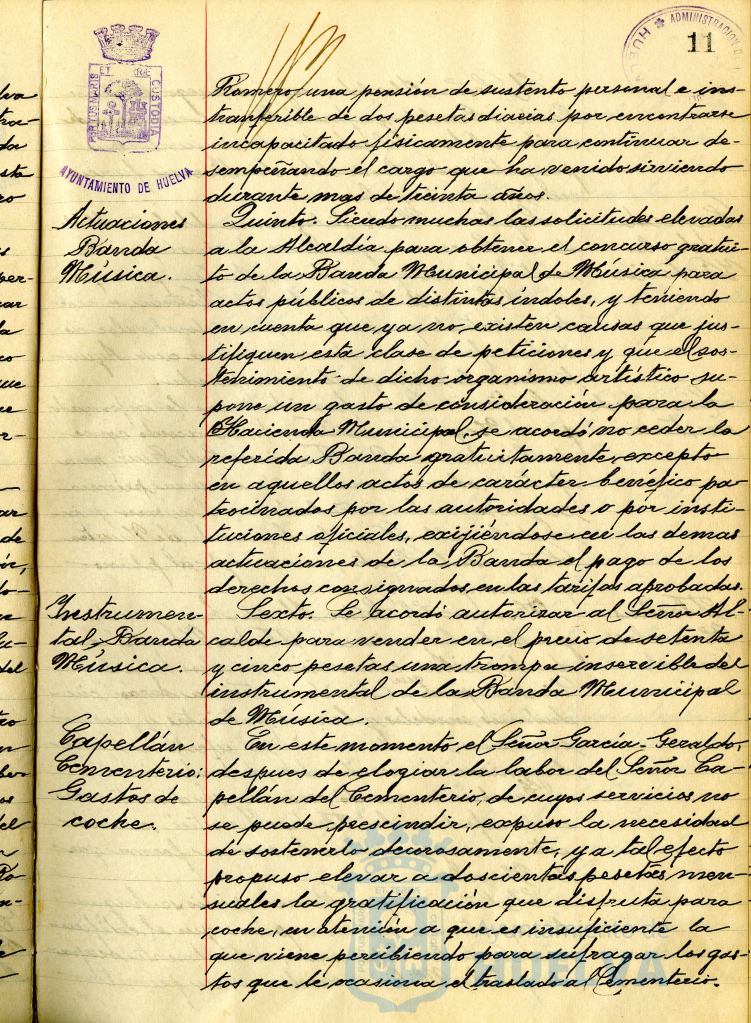 11
HUELVA ADMINISTRACION
PORTUS MARIS ET TERRAE CUSTODIA
AYUNTAMIENTO DE HUELVA
Romero, una pensión de sustento personal e ins-
tranferible de dos pesetas diarias por encontrarse
incapacitado físicamente para continuar de-
sempeñando el cargo que ha venido sirviendo
durante mas de treinta años.
Actuaciones
Banda
Música.
Quinto. Siendo muchas las solicitudes elevadas
a la Alcaldía para obtener el concurso gratui-
to de la Banda Municipal de Música para
actos públicos de distintas índoles, y teniendo
en cuenta que, ya no, existen causas que jus-
tifiquen esta clase de peticiones y que el sos-
tenimiento de dicho organismo artístico su-
pone un gasto de consideración para la
Hacienda Municipal, se acordó no ceder la
referida Banda gratuitamente, excepto
en aquellos actos de carácter benéfico pa-
trocinados por las autoridades o por insti-
tuciones oficiales, exijiéndose en las demas
actuaciones de la Banda el pago de los
derechos consignados en las tarifas aprobadas.
Instrumen-
tal Banda
Música.
Sexto. Se acordó autorizar al Señor Al-
calde para vender en el precio de setenta
y cinco pesetas una trompa inservible del
instrumental de la Banda Municipal
de Música.
Capellán
Cementerio:
Gastos de
coche.
En este momento, el Señor García-Geraldo,
despues de elogiar la labor del Señor Ca-
pellán del Cementerio, de cuyos servicios no
se puede prescindir, expuso la necesidad
de sostenerlo decorosamente, y a tal efecto
propuso elevar a doscientas pesetas men-
suales la gratificación que disfruta para
coche, en atención a que es insuficiente la
que viene percibiendo para sufragar los gas-
tos que le ocasiona el traslado al Cementerio.